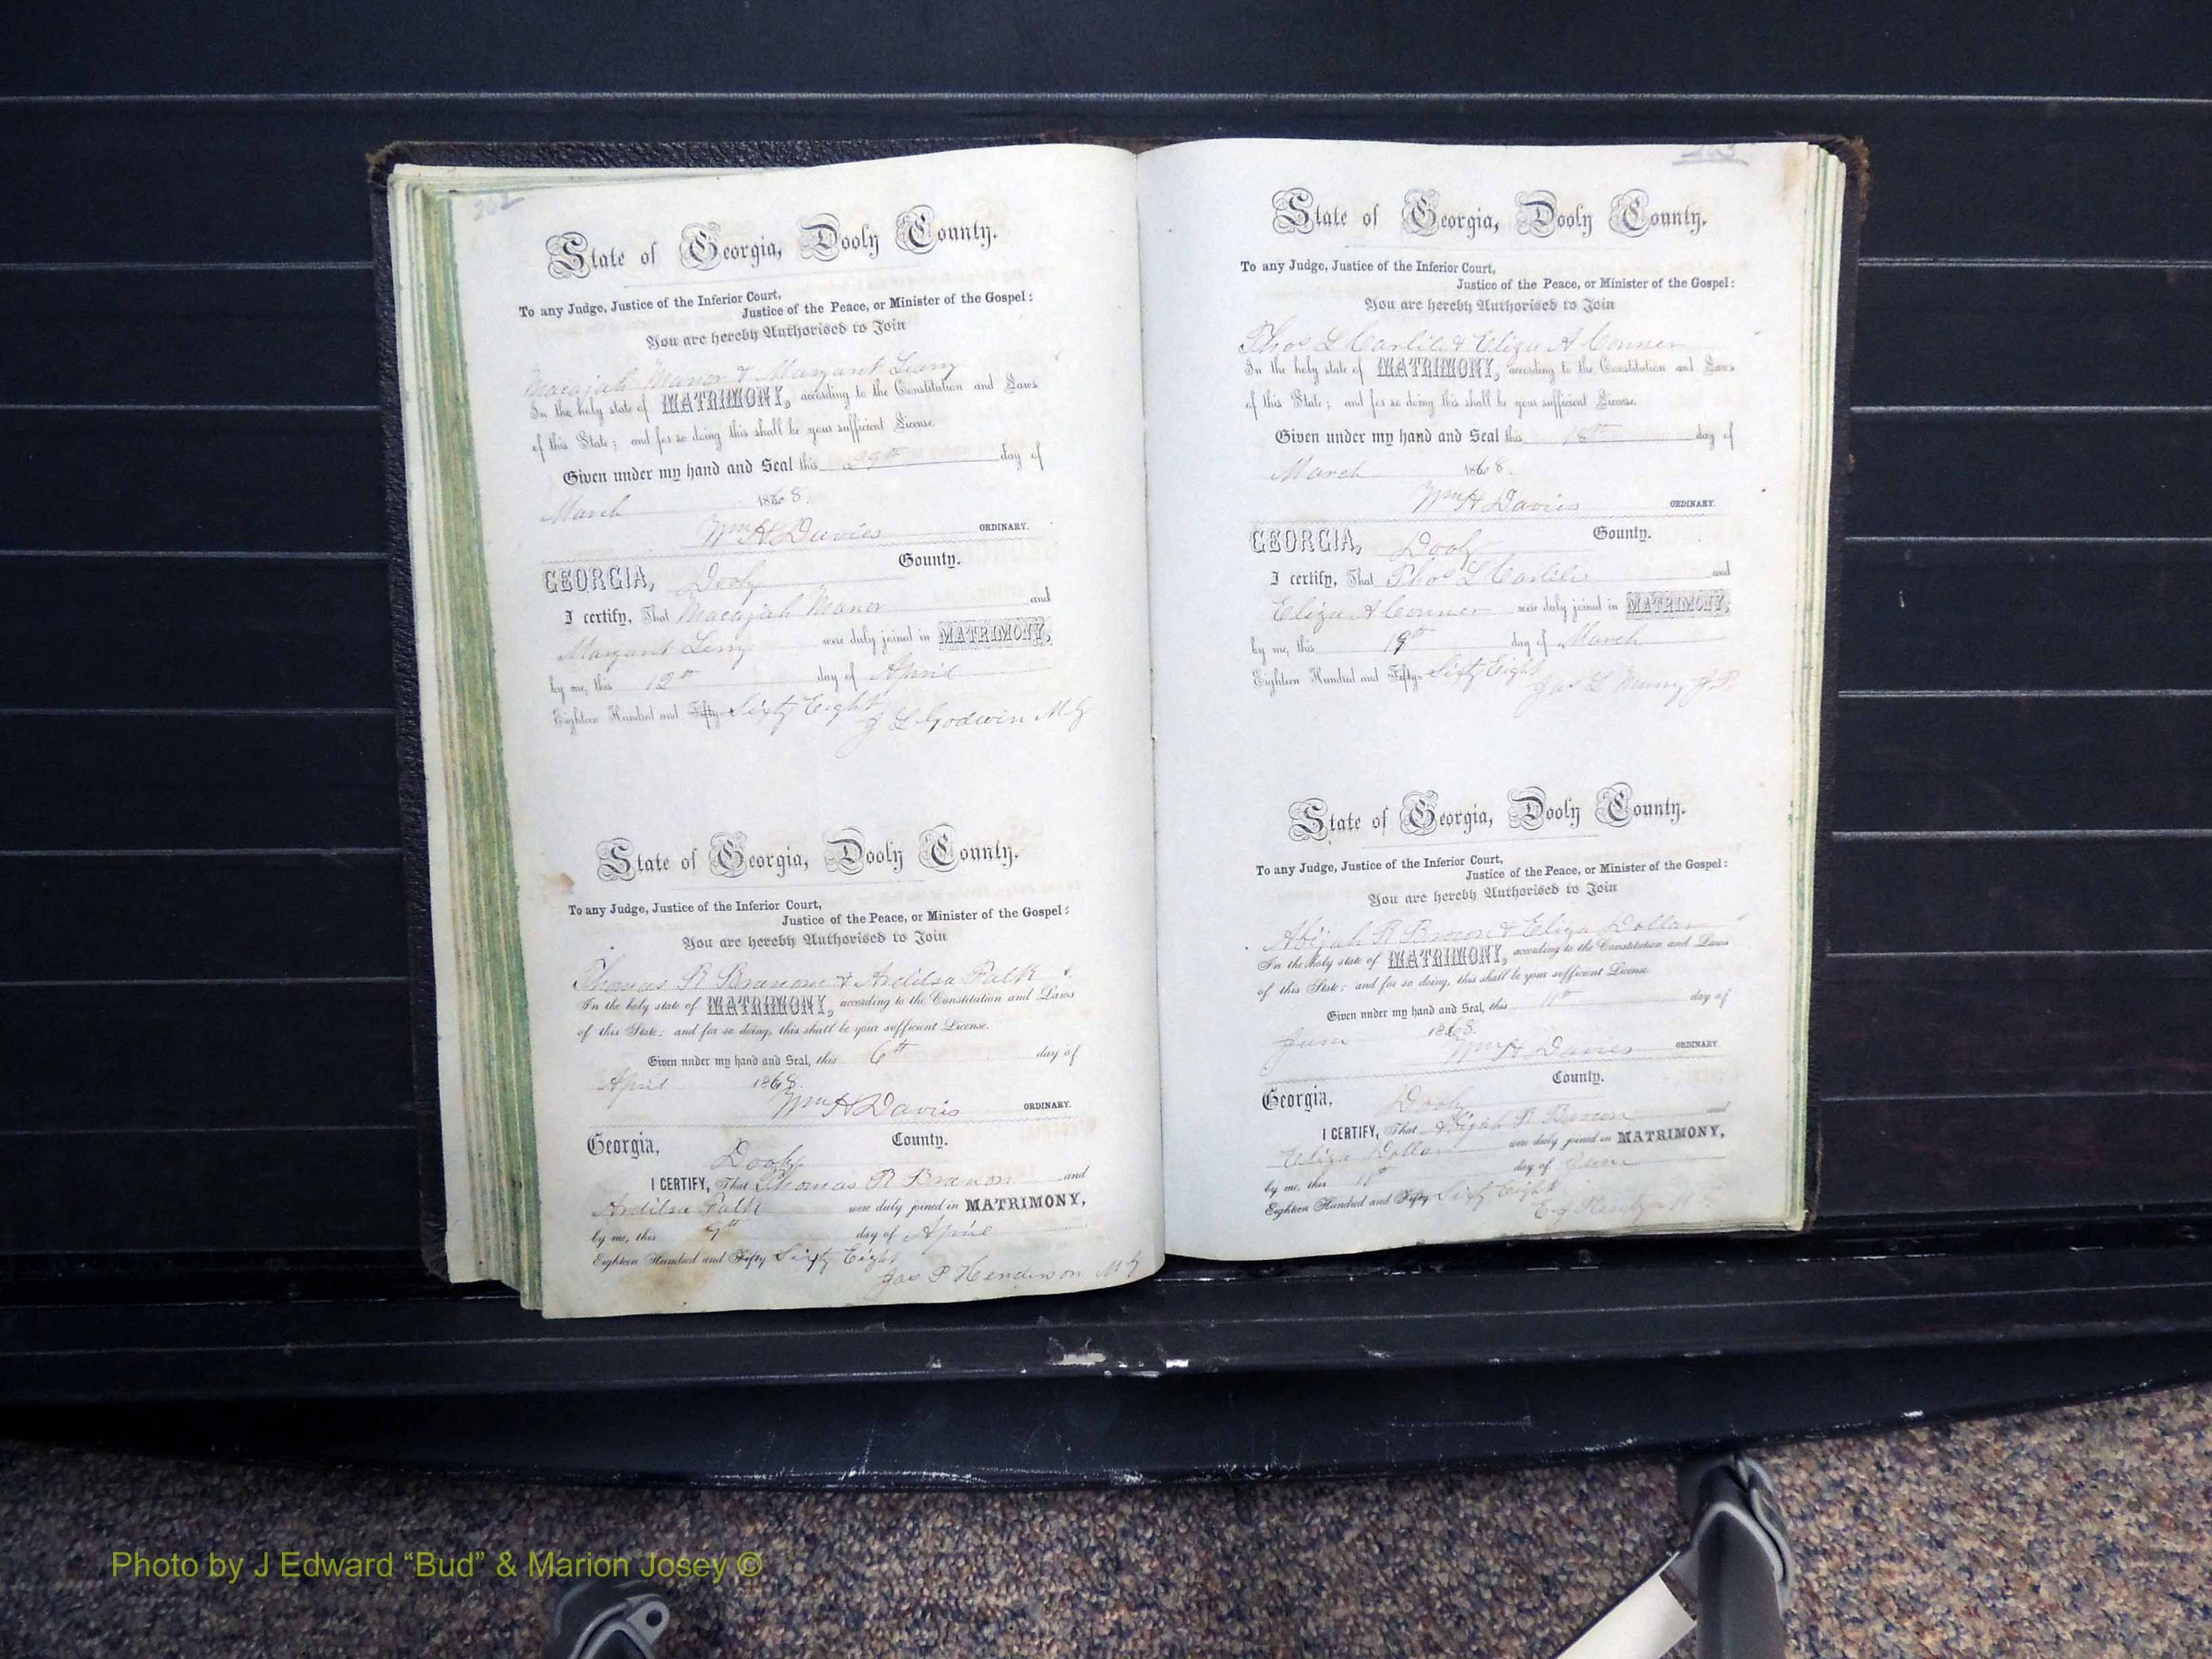 262
State of Georgia, Dooly County.
To any Judge, Justice of the Inferior Court,
Justice of the Peace, or Minister of the Gospel:
You are hereby Authorised to Join
Macajah Manor & Margant
In the holy state of MATRIMONY, according to the Constitution and Laws
of this State; and for so doing this shall be your sufficient License.
Given under my hand and Seal this 29th day of
March 1868.
Wm H Davies ORDINARY.
GEORGIA, Dooly County.
I certify, That Macajah Manor and
Margant were duly joined in MATRIMONY,
by me, this 12th day of April
Eighteen Hundred and Fifty Sixty Eight
J L Godwin M G
State of Georgia, Dooly County.
To any Judge, Justice of the Inferior Court,
Justice of the Peace, or Minister of the Gospel:
You are hereby Authorised to Join
Thomas R & Ardilsa Falk
In the holy state of MATRIMONY, according to the Constitution and Laws
of this State: and for so doing, this shall be your sufficient License.
Given under my hand and Seal, this 6th day of
April 1868.
Wm H Davies ORDINARY.
Georgia, Dooly County.
I CERTIFY, That Thomas R and
Ardilsa Falk were duly joined in MATRIMONY,
by me, this 9th day of April
Eighteen Hundred and Fifty Sixty Eight
Jas P Henderson M G
State of Georgia, Dooly County.
To any Judge, Justice of the Inferior Court,
Justice of the Peace, or Minister of the Gospel:
You are hereby Authorised to Join
Thos L Carlile & Eliza A Conner
In the holy state of MATRIMONY, according to the Constitution and Laws
of this State; and for so doing this shall be your sufficient License.
Given under my hand and Seal this day of
March 1868.
Wm H Davies ORDINARY.
GEORGIA, Dooly County.
I certify, That Thos L Carlile and
Eliza A Conner were duly joined in MATRIMONY,
by me, this 19th day of March
Eighteen Hundred and Fifty Sixty Eight
Jas L
State of Georgia, Dooly County.
To any Judge, Justice of the Inferior Court,
Justice of the Peace, or Minister of the Gospel:
You are hereby Authorised to Join
Abijah R Brown & Eliza Dollar
In the holy state of MATRIMONY, according to the Constitution and Laws
of this State; and for so doing, this shall be your sufficient License.
Given under my hand and Seal, this 11th day of
1868.
Wm H Davies ORDINARY
Georgia, Dooly County.
I CERTIFY, That Abijah R Brown and
Eliza Dollar were duly joined in MATRIMONY,
by me, this day of
Eighteen Hundred and Fifty Sixty Eight
Photo by J Edward “Bud” & Marion Josey ©